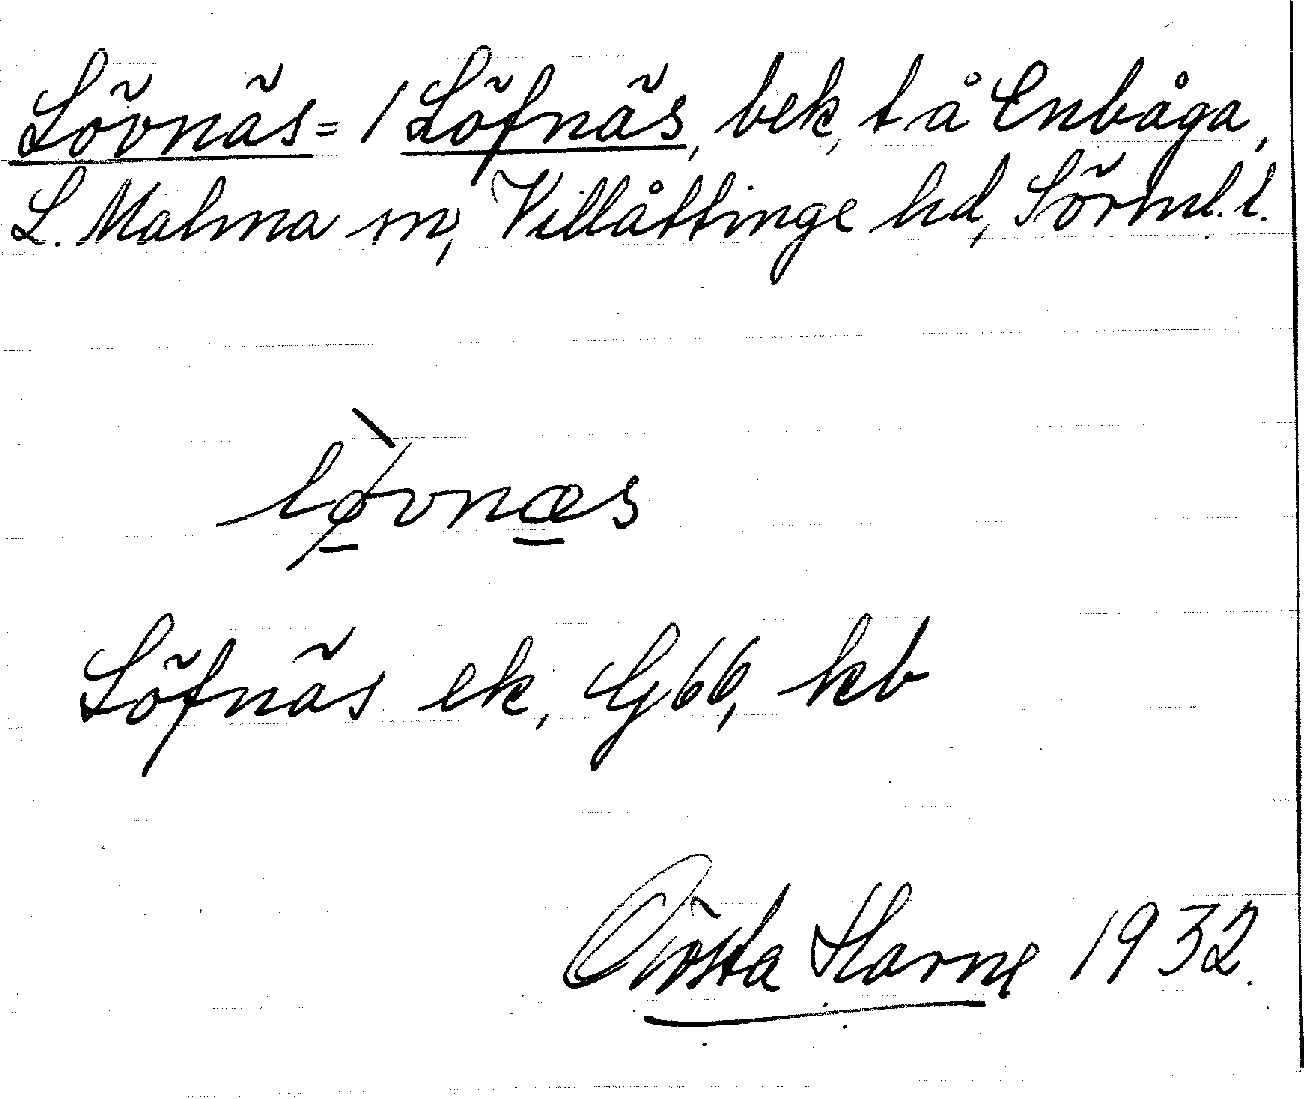 Lövnäs = 1 Löfnäs, bek, t å Enbåga,
L. Malma sn, Villåttinge hd, Sörml. l.
lø̀vnæs
Löfnäs ek, G66, kb
Gösta Harne 1932.